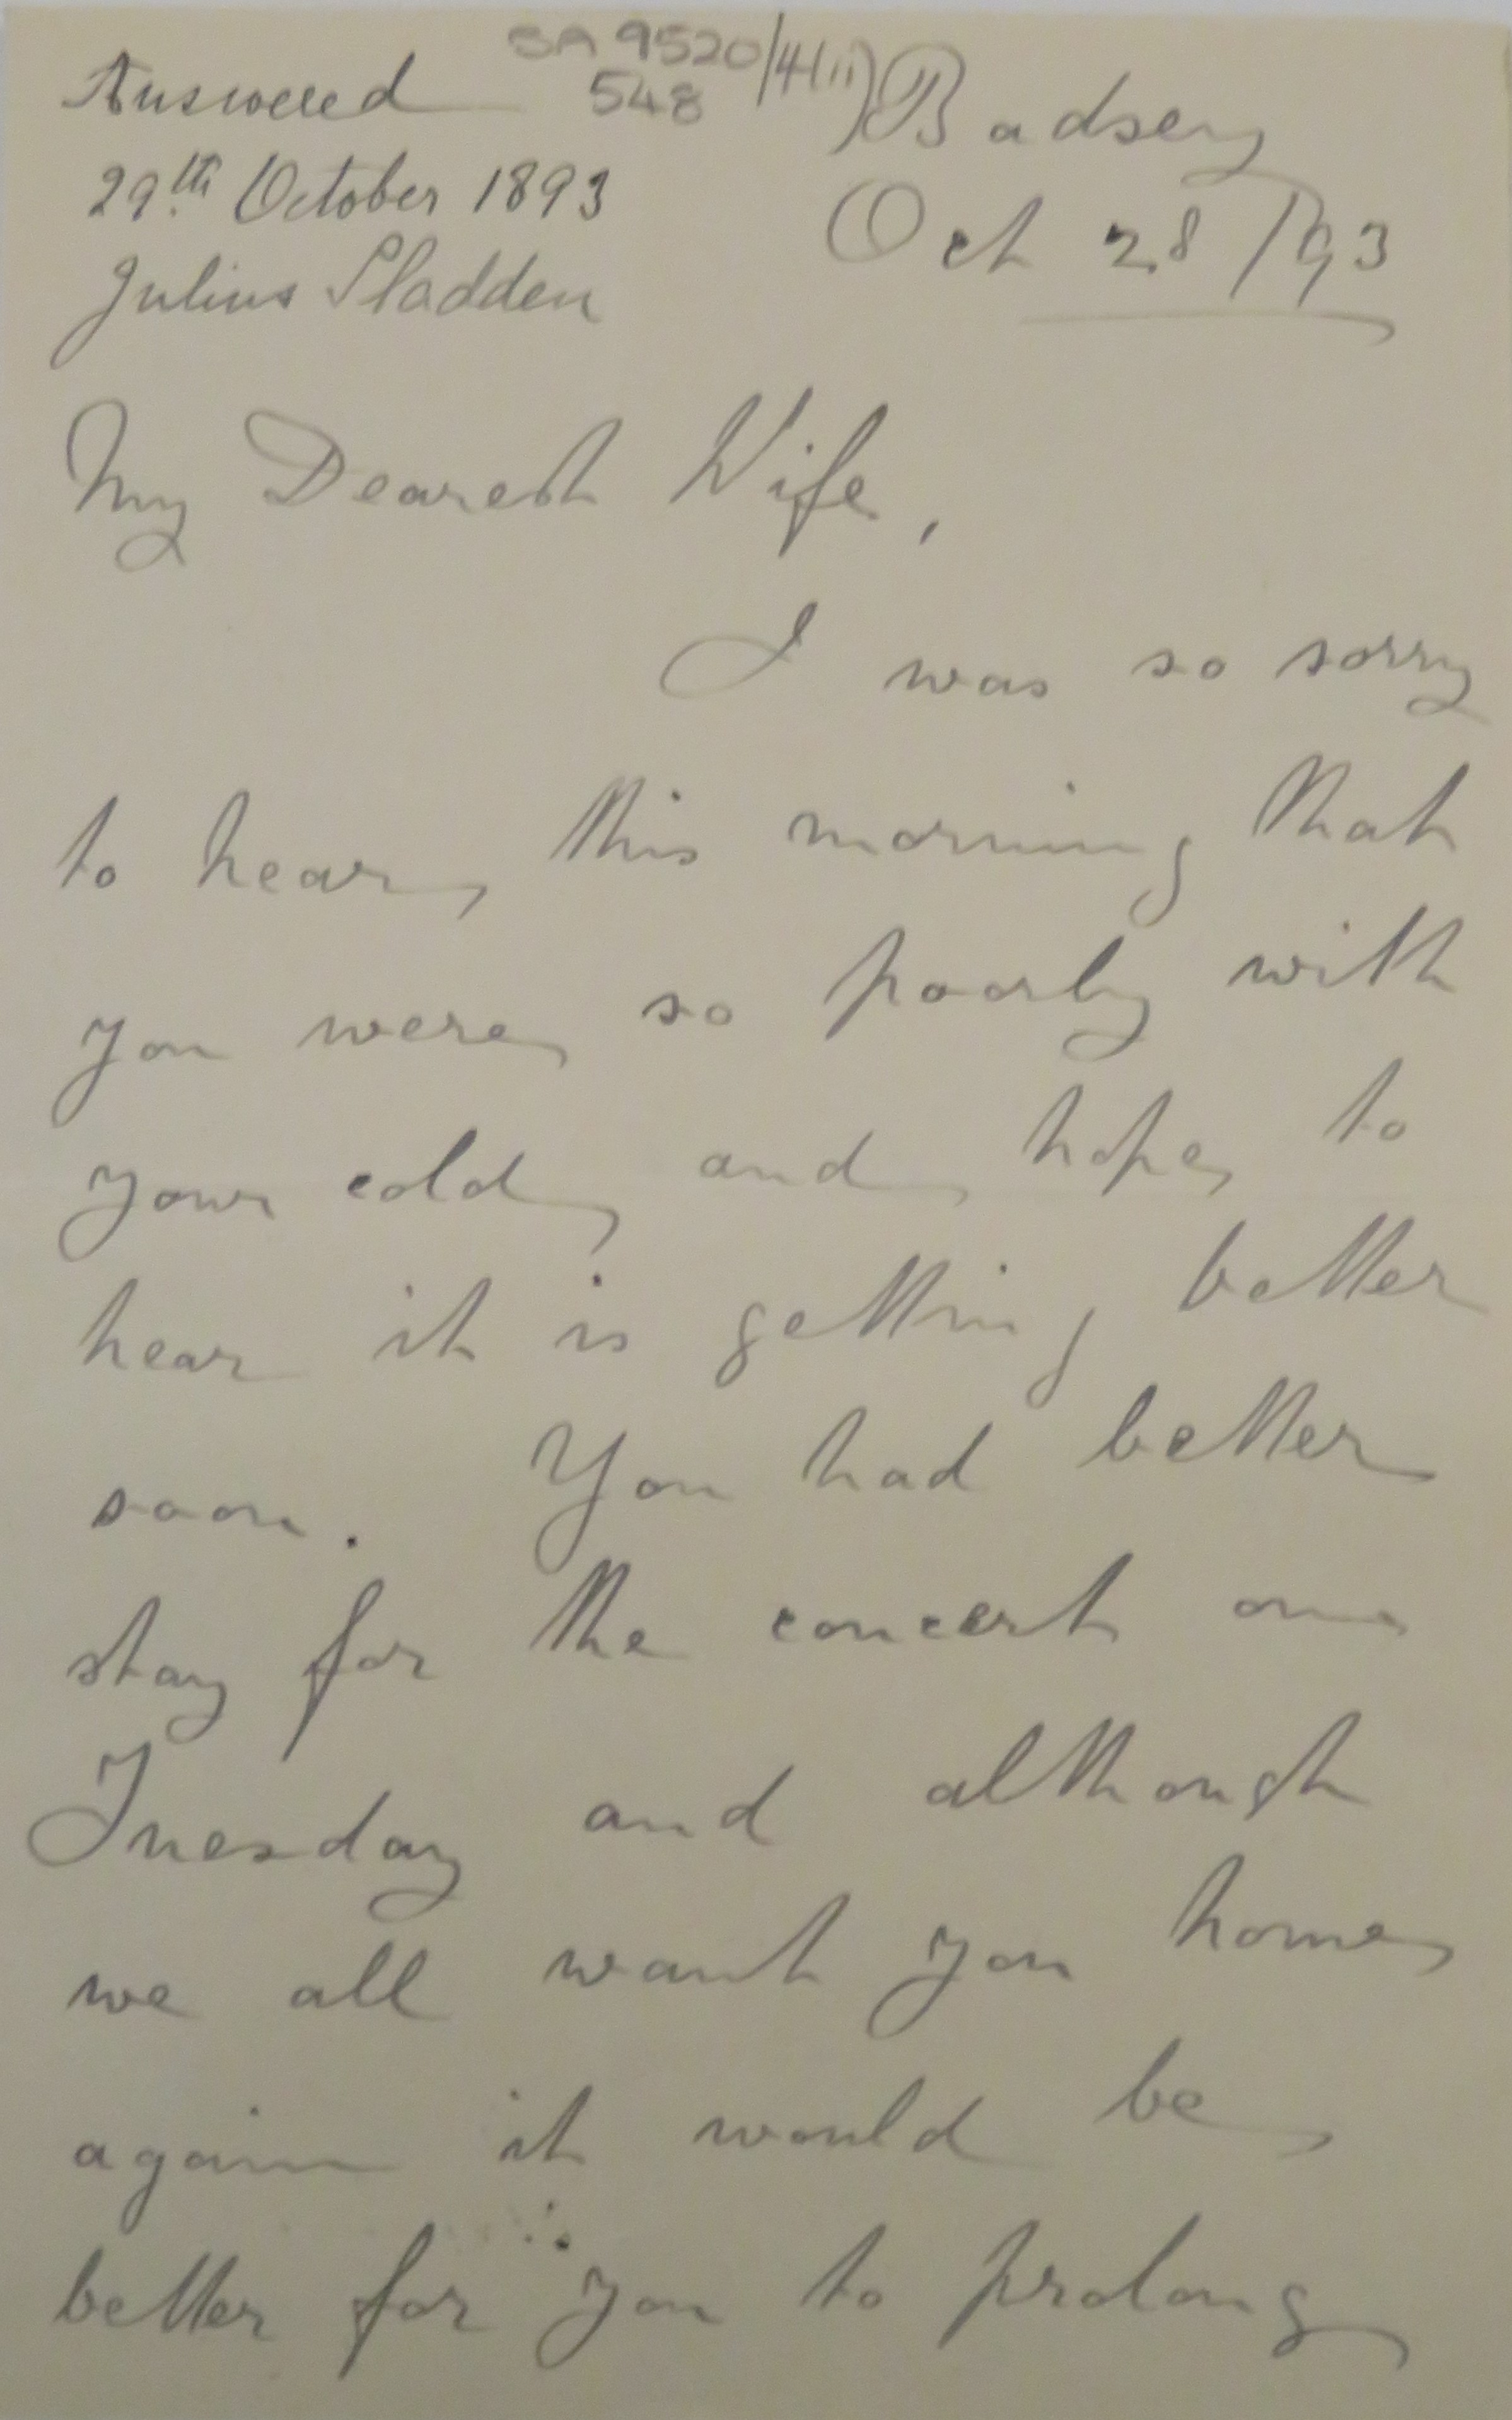 BA 9520/4(ii)
548
Answered
29th October 1893
Julius Sladden
Badsey
Oct 28/93
My Dearest Wife,
I was so sorry
to hear this morning that
you were so poorly with
your cold and hope to
hear it is getting better
soon. You had better
stay for the concert on
Tuesday and although
we all want you home
again it would be
better for you to prolong